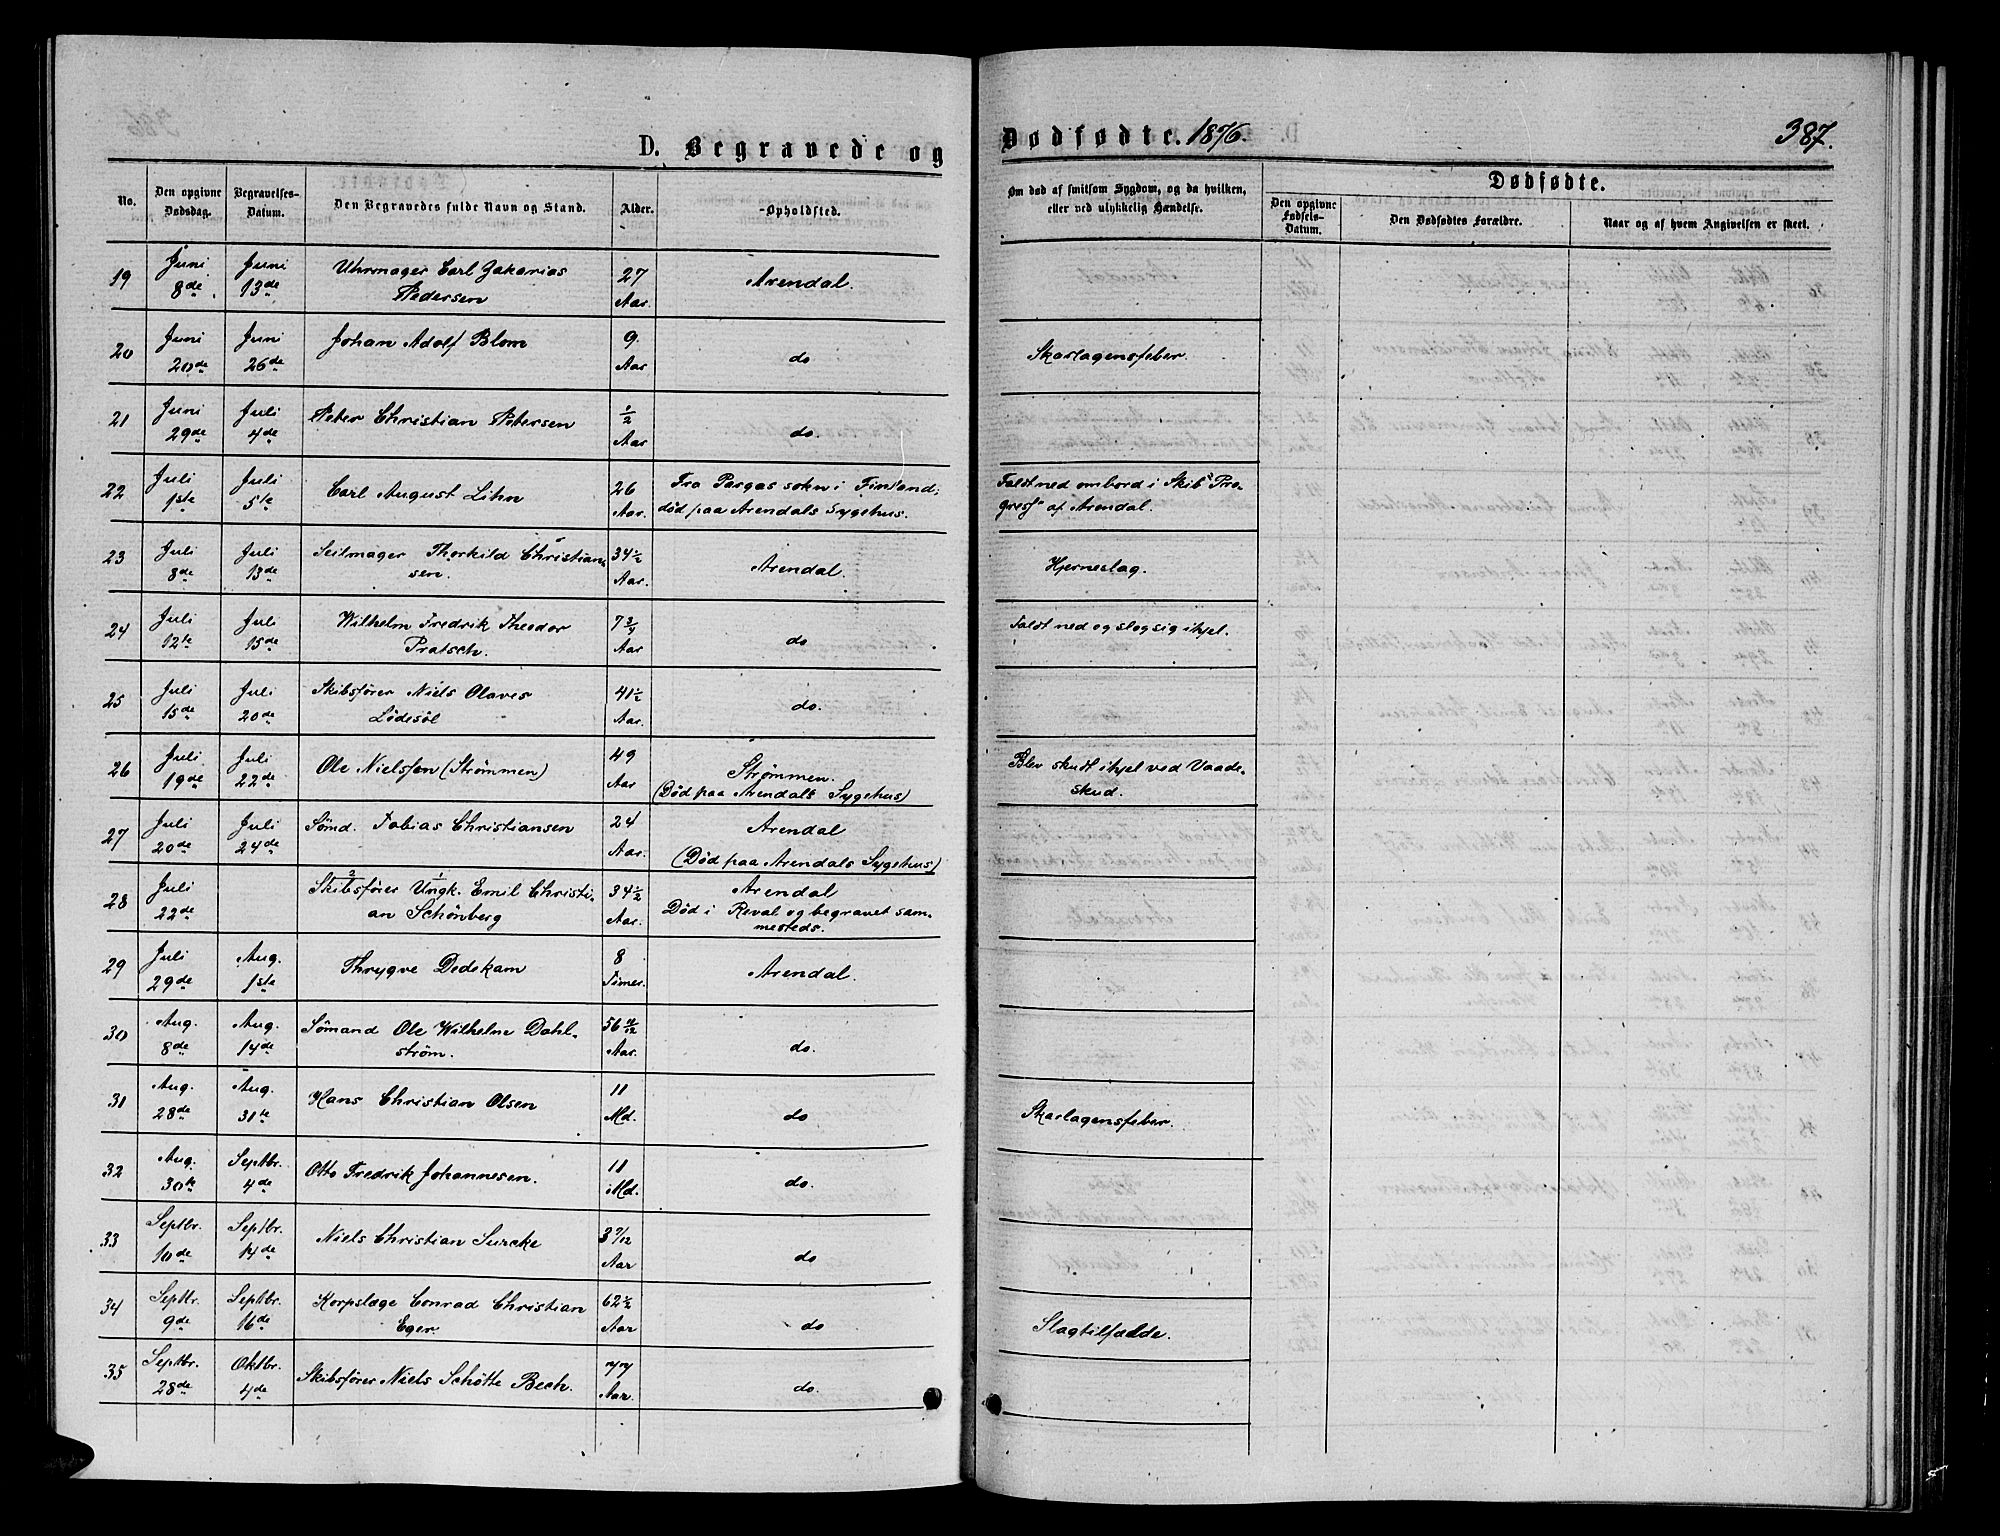 D. Begravede og Dødfødte. 1876. 387.
No. Den opgivne Dødsdag. Begravelses-Datum. Den Begravedes fulde Navn og Stand. Alder. Opholdsted. Om død af smitsom Sygdom, og da hvilken, eller ved ulykkelig Hændelse. Dødfødte. Den opgivne Fødsels-Datum. Den Dødfødtes Forældre. Naar og af hvem Angivelsen er skeet.
19 Juni 8de Juni 13de Uhrmager Carl Zakarias Pedersen 27 Aar. Arendal.
20 Juni 20de Juni 26de Johan Adolf Blom 9 Aar do Skarlagensfeber.
21 Juni 29de Juli 4de Peter Christian Petersen 1/2 Aar do.
22 Juli 1ste Juli 5te Carl August Lihn 26 Aar. Fra Pargas sokn i Finland; død paa Arendals Sygehus. Faldt ned ombord i Skib "Progress" af Arendal.
23 Juli 8de Juli 13de Seilmager Thorkild Christiansen. 34 1/2 Aar. Arendal. Hjerneslag.
24 Juli 12te Juli 15de Wilhelm Fredrik Theodor Pratsch. 7 3/4 Aar do Faldt ned og slog sig ihjel.
25 Juli 15de Juli 20de Skibsfører Niels Olaves Lödesöl 41 1/2 Aar. do.
26 Juli 19de Juli 22de Ole Nielssen (Strömmen) 49 Aar Strömmen. (Död paa Arendals Sygehus) Blev skudt ihjel ved Vaadeskud.
27 Juli 20de Juli 24de Sömd. Tobias Christiansen 24 Aar. Arendal (Död paa Arendals Sygehus)
28 Juli 22de Skibsförer 2 Ungk. 1 Emil Christian Schönberg 34 1/2 Aar. Arendal Död i Reval og begravet sammesteds.
29 Juli 29de Aug. 1ste Thrygve Dedekam 8 Timer. Arendal.
30 Aug. 8de Aug. 14de Sömand Ole Wilhelm Dahlström. 56 Aar. do.
31 Aug. 28de Aug. 31te Hans Christian Olsen 11 Md. do Skarlagensfeber.
32 Aug. 30te Septbr. 4de Otto Fredrik Johannesen. 11 Md. do.
33 Septbr. 10de Septbr. 14de Niels Christian Surcke 3 7/12 Aar do
34 Septbr. 9de Septbr. 16de Korpslæge Conrad Christian Eger. 62 1/2 Aar do Slagtilfælde.
35 Septbr. 28de Oktbr. 4de Skibsfører Niels Schøtte Bech. 77 Aar. do.